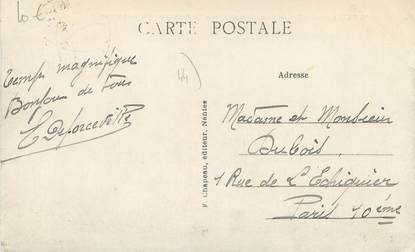 CARTE POSTALE
Temps magnifique
Bonjour de tous
Adresse
Madame et Monsieur
Dubois
1 Rue de L'Echiquier
Paris 10ème
F. Chapeau, éditeur, Nantes